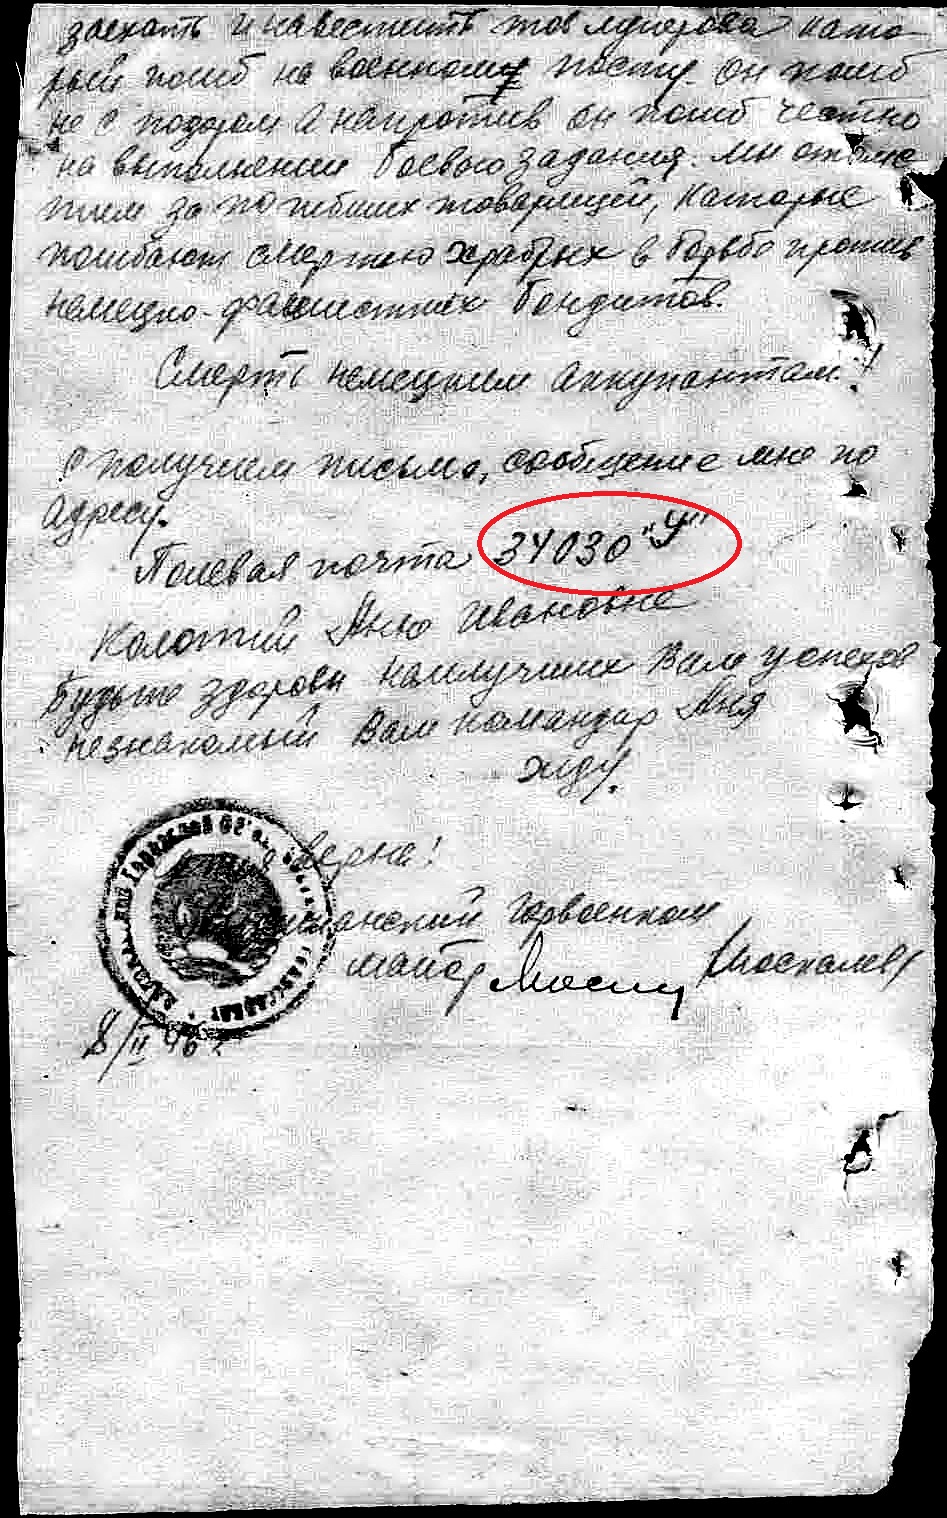 заехать и навестить тов Мунерова като
рый погиб на военному посту он погиб
не с позором а напротив он погиб честно
на выполнении боевого задания. мы отоме
тим за погибших товарищей, каторые
погибают смертью храбрых в борьбе против
немецко-фашистких бондитов.
Смерть немецким аккупантам!
с получием письма, сообщение мне по
адресу.
Полевая почта 34030 "У"
Ивановне
Будьте здоровы наилучших Вам успехов
незнакомый Вам командир Аня
жду!
верно!
Горвоенком
майор Москалев
8/II 46 г